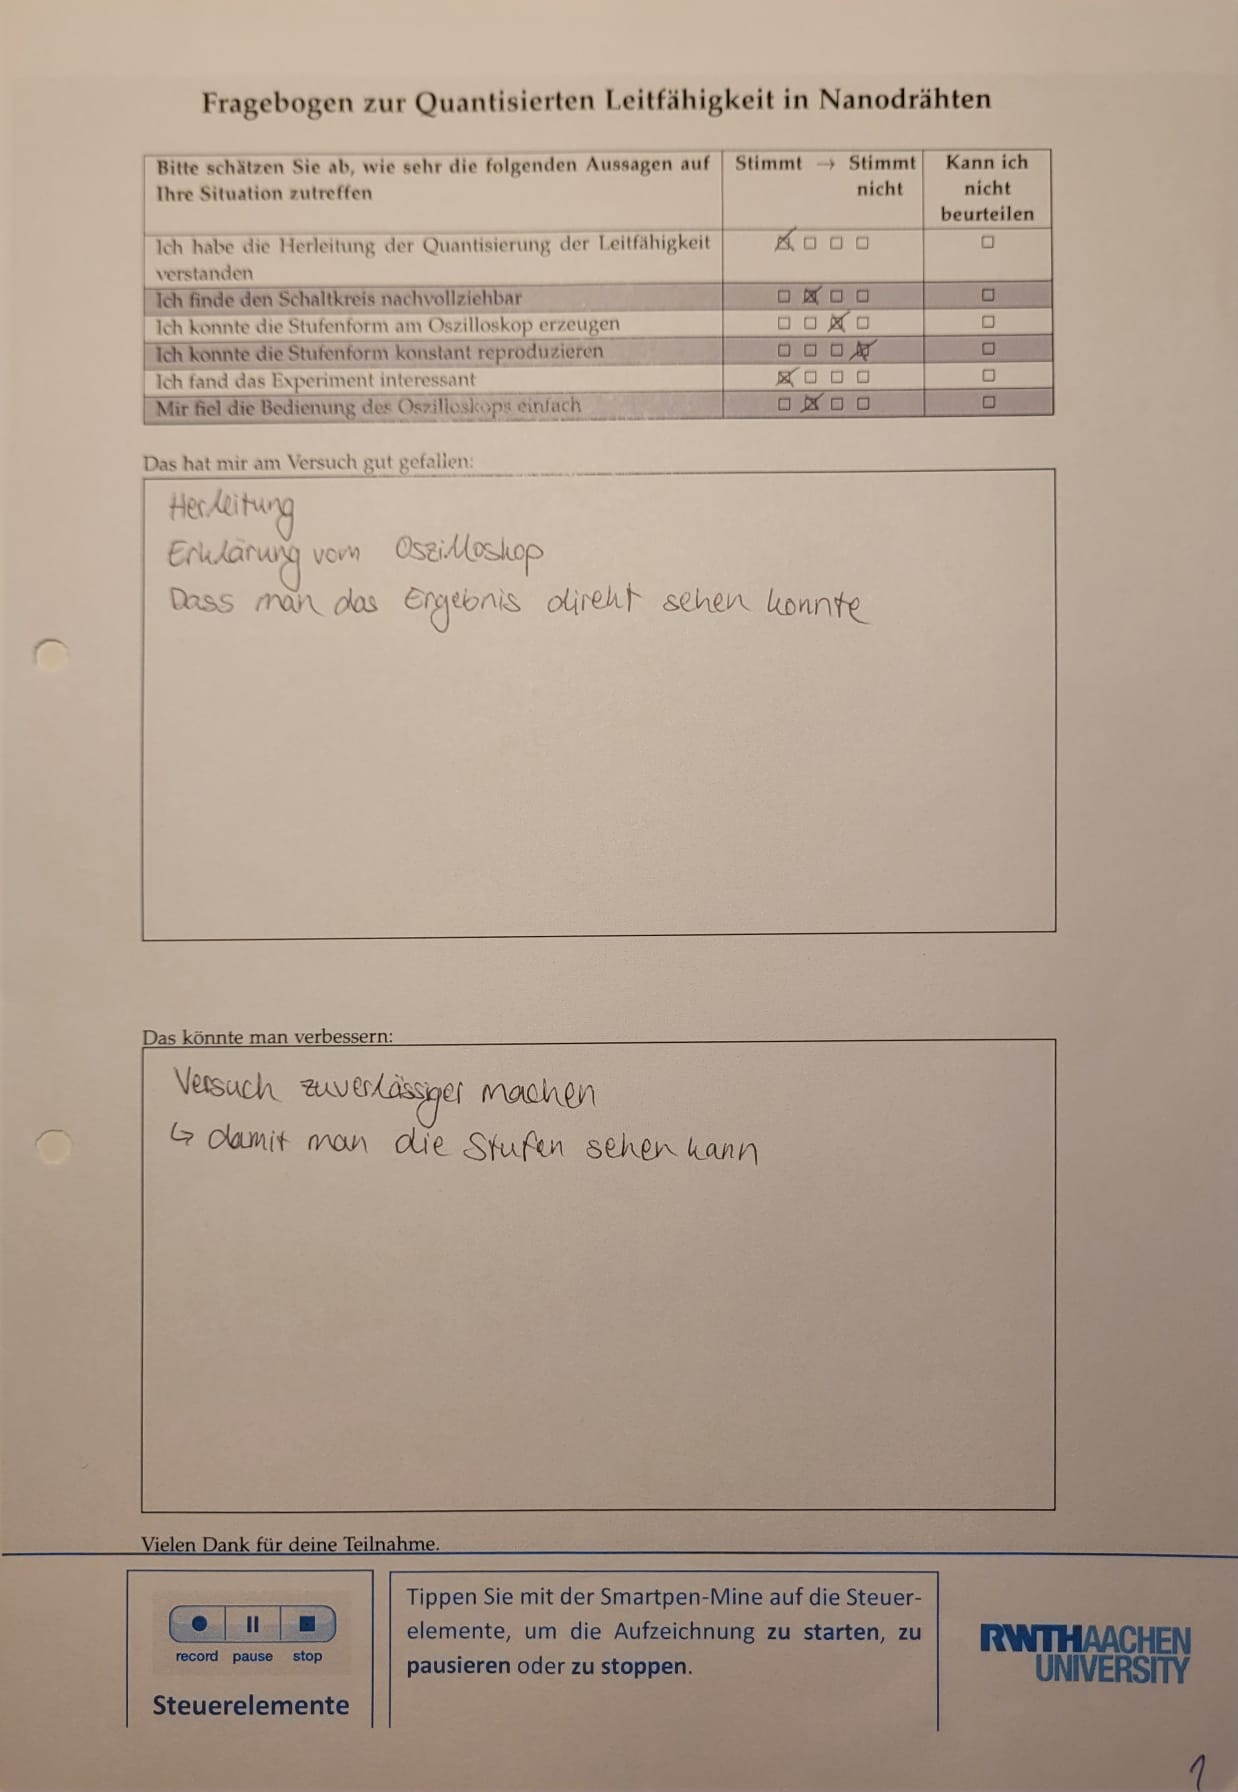 Fragebogen zur Quantisierten Leitfähigkeit in Nanodrähten
Bitte schätzen Sie ab, wie sehr die folgenden Aussagen auf Ihre Situation zutreffen
Stimmt → Stimmt nicht
Kann ich nicht beurteilen
Ich habe die Herleitung der Quantisierung der Leitfähigkeit
verstanden
Ich finde den Schaltkreis nachvollziehbar
Ich konnte die Stufenform am Oszilloskop erzeugen
Ich konnte die Stufenform konstant reproduzieren
Ich fand das Experiment interessant
Mir fiel die Bedienung des Oszilloskops einfach
Das hat mir am Versuch gut gefallen:
Herleitung
Erklärung vom Oszilloskop
Dass man das Ergebnis direkt sehen konnte
Das könnte man verbessern:
Versuch zuverlässiger machen
↳ damit man die Stufen sehen kann
Vielen Dank für deine Teilnahme.
record pause stop
Steuerelemente
Tippen Sie mit der Smartpen-Mine auf die Steuer-
elemente, um die Aufzeichnung zu starten, zu
pausieren oder zu stoppen.
RWTHAACHEN
UNIVERSITY
1